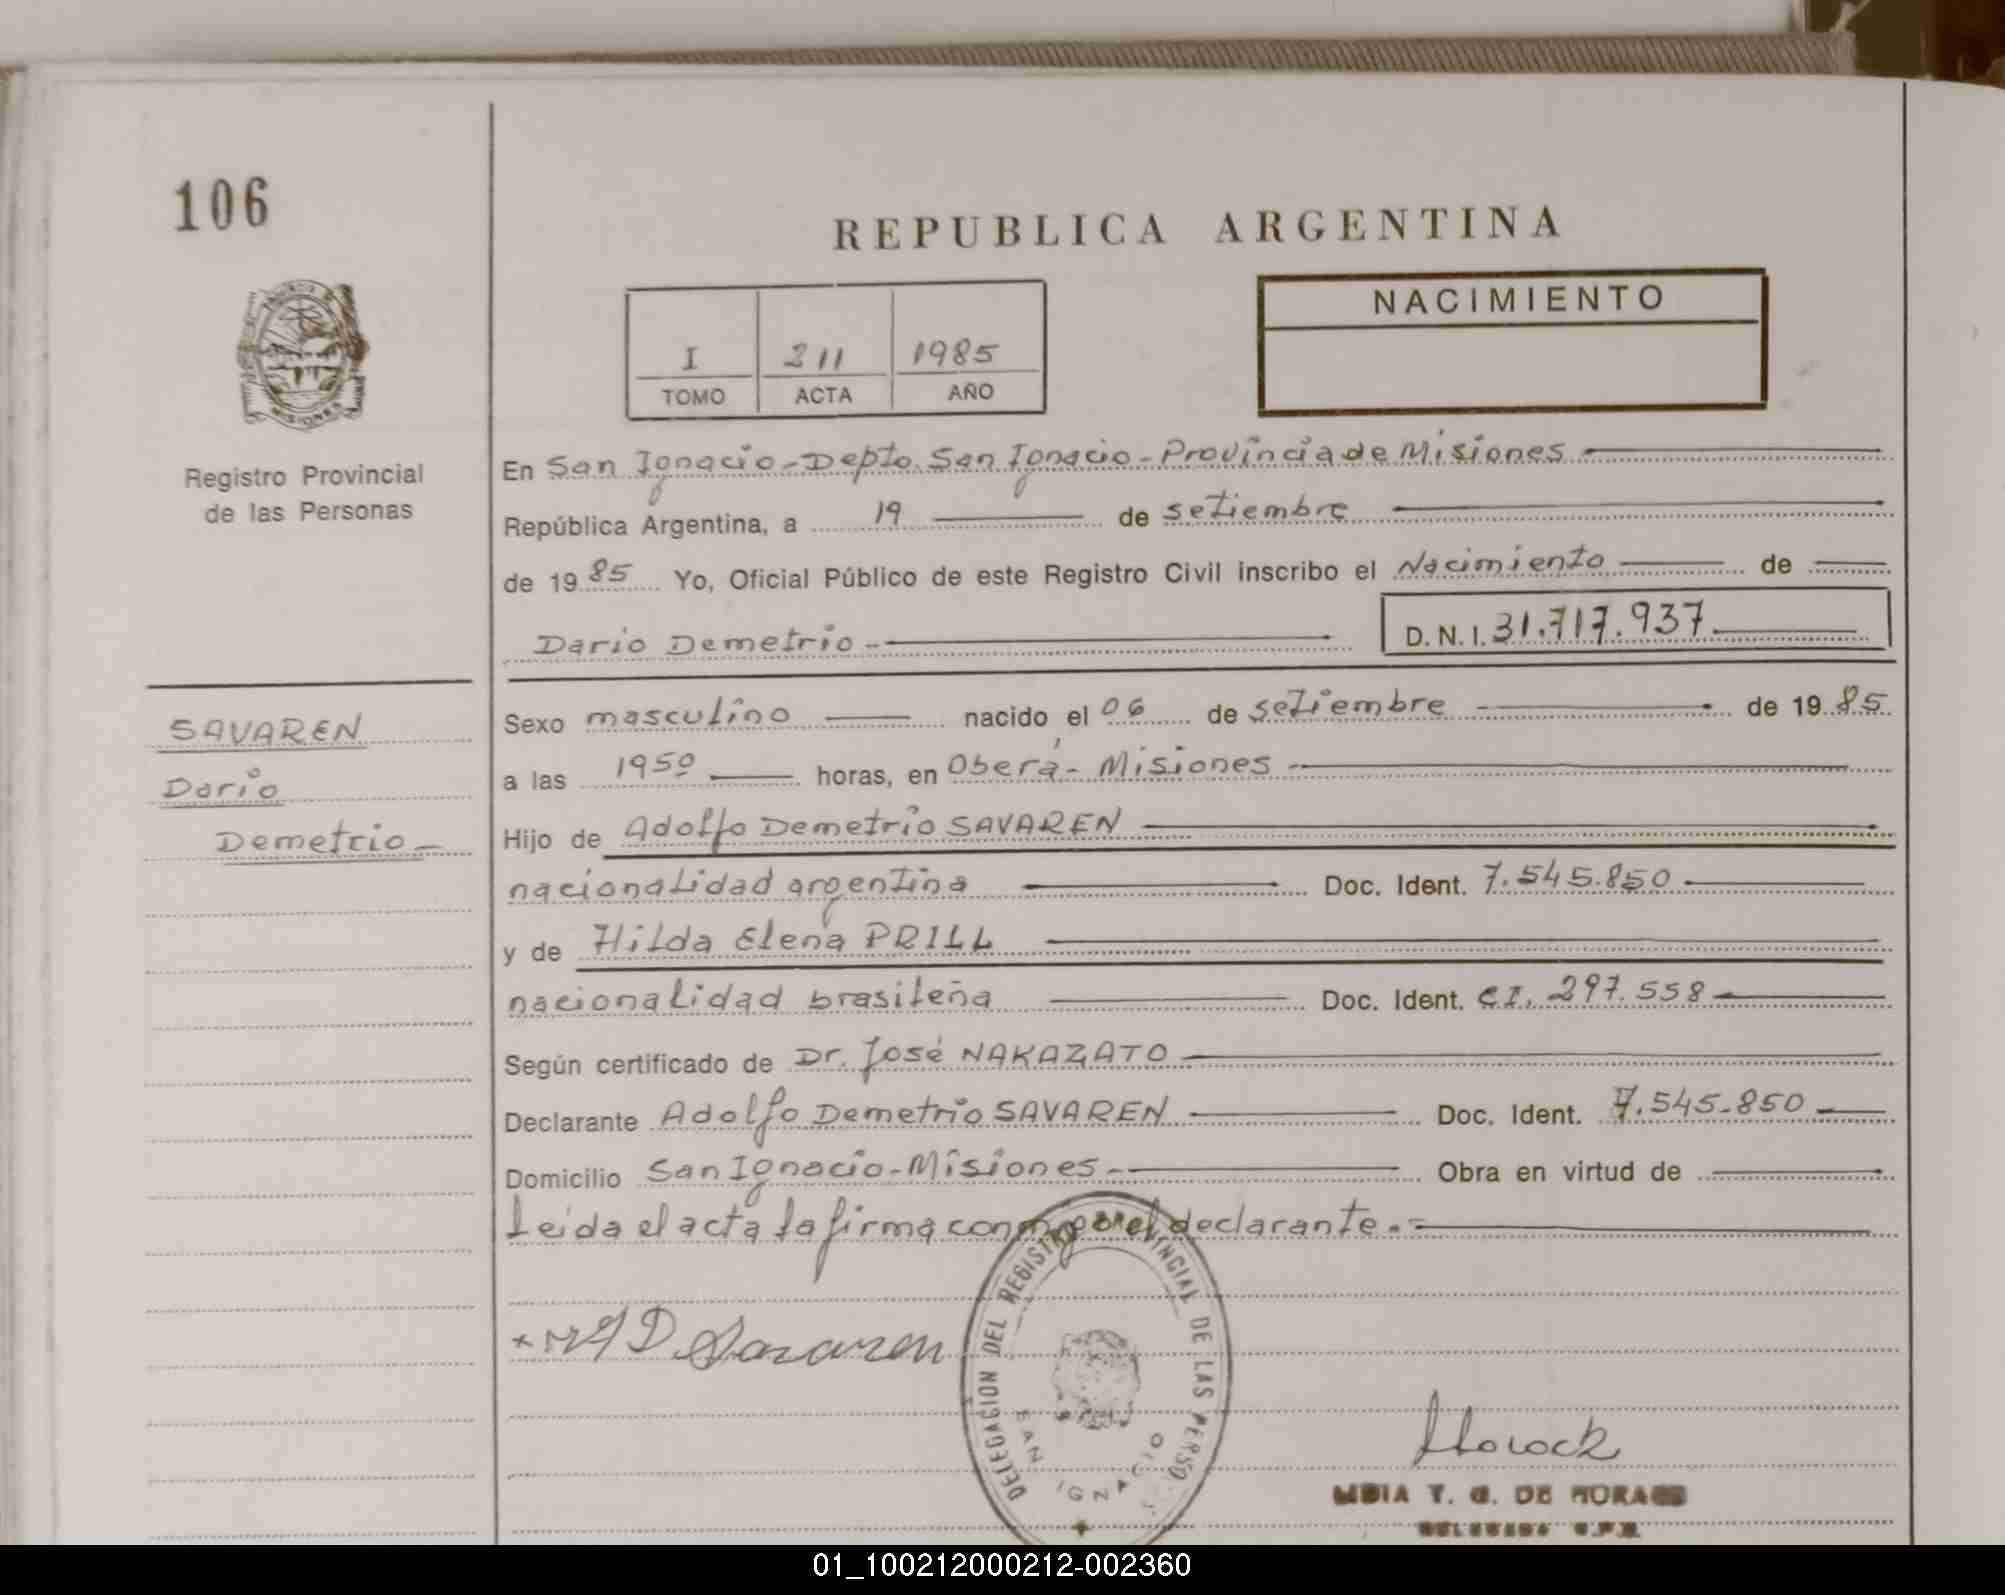 106
REPUBLICA ARGENTINA
I 211 1985
TOMO ACTA AÑO
NACIMIENTO
MISIONES
Registro Provincial
de las Personas
En San Ignacio - Depto. San Ignacio - Provincia de Misiones
República Argentina, a 19 de setiembre
de 1985 Yo, Oficial Público de este Registro Civil inscribo el Nacimiento de
Dario Demetrio - D. N. I. 31.717.937
SAVAREN
Dario
Demetrio -
Sexo masculino nacido el 06 de setiembre de 1985
a las 1950 horas, en Oberá - Misiones
Hijo de Adolfo Demetrio SAVAREN
nacionalidad argentina Doc. Ident. 7.545.850
y de Hilda Elena PRILL
nacionalidad brasileña Doc. Ident. CI. 297.558
Según certificado de Dr. José NAKAZATO
Declarante Adolfo Demetrio SAVAREN Doc. Ident. 7.545.850
Domicilio San Ignacio - Misiones - Obra en virtud de
Leida el acta la firma conmigo el declarante.=
D Savaren
DELEGACION DEL REGISTRO PROVINCIAL DE LAS PERSO
SAN IGNACIO
T. G. DE MORAES
01_100212000212-002360